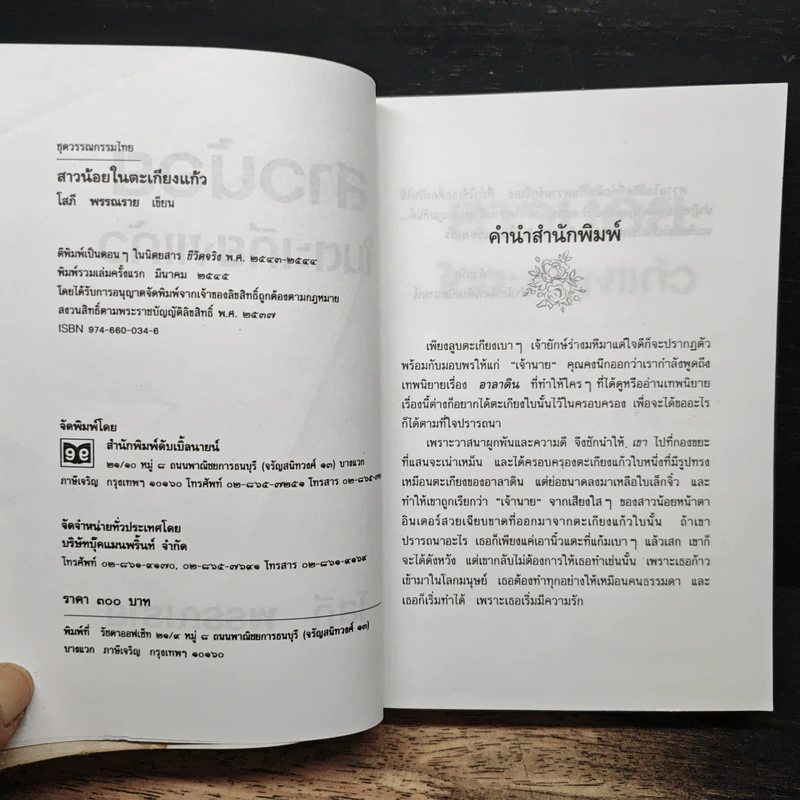 ชุดวรรณกรรมไทย
สาวน้อยในตะเกียงแก้ว
โสภี พรรณราย เขียน
ตีพิมพ์เป็นตอนๆ ในนิตยสาร ชีวิตจริง พ.ศ. ๒๕๔๓-๒๕๔๔
พิมพ์รวมเล่มครั้งแรก มีนาคม ๒๕๔๕
โดยได้รับการอนุญาตจัดพิมพ์จากเจ้าของลิขสิทธิ์ถูกต้องตามกฎหมาย
สงวนสิทธิ์ตามพระราชบัญญัติลิขสิทธิ์ พ.ศ. ๒๕๓๗
ISBN 974-660-034-6
จัดพิมพ์โดย
สำนักพิมพ์ดับเบิ้ลนายน์
๒๑/๑๐ หมู่ ๘ ถนนพาณิชยการธนบุรี (จรัญสนิทวงศ์ ๑๓) บางแวก
ภาษีเจริญ กรุงเทพฯ ๑๐๑๖๐ โทรศัพท์ ๐๒-๘๖๕-๗๒๕๑ โทรสาร ๐๒-๘๖๕-
จัดจำหน่ายทั่วประเทศโดย
บริษัทบุ๊คแมนพริ้นท์ จำกัด
โทรศัพท์ ๐๒-๘๖๑-๙๑๗๐, ๐๒-๘๖๕-๗๖๙๑ โทรสาร ๐๒-๘๖๑-๙๑๖๙
ราคา ๓๐๐ บาท
พิมพ์ที่ รัชดาออฟเซ็ท ๒๑/๙ หมู่ ๘ ถนนพาณิชยการธนบุรี (จรัญสนิทวงศ์ ๑๓)
บางแวก ภาษีเจริญ กรุงเทพฯ ๑๐๑๖๐
คำนำสำนักพิมพ์
เพียงลูบตะเกียงเบาๆ เจ้ายักษ์ร่างมหึมาแต่ใจดีก็จะปรากฏตัว
พร้อมกับมอบพรให้แก่ "เจ้านาย" คุณคงนึกออกว่าเรากำลังพูดถึง
เทพนิยายเรื่อง อาลาดิน ที่ทำให้ใครๆ ที่ได้ดูหรืออ่านเทพนิยาย
เรื่องนี้ต่างก็อยากได้ตะเกียงใบนั้นไว้ในครอบครอง เพื่อจะได้ขออะไร
ก็ได้ตามที่ใจปรารถนา
เพราะวาสนาผูกพันและความดี จึงชักนำให้ เขา ไปที่กองขยะ
ที่แสนจะเน่าเหม็น และได้ครอบครองตะเกียงแก้วใบหนึ่งที่มีรูปทรง
เหมือนตะเกียงของอาลาดิน แต่ย่อขนาดลงมาเหลือใบเล็กจิ๋ว และ
ทำให้เขาถูกเรียกว่า "เจ้านาย" จากเสียงใสๆ ของสาวน้อยหน้าตา
อินเตอร์สวยเฉียบขาดที่ออกมาจากตะเกียงแก้วใบนั้น ถ้าเขา
ปรารถนาอะไร เธอก็เพียงแค่เอานิ้วแตะที่แก้มเบาๆ แล้วเสก เขาก็
จะได้ดังหวัง แต่เขากลับไม่ต้องการให้เธอทำเช่นนั้น เพราะเธอก้าว
เข้ามาในโลกมนุษย์ เธอต้องทำทุกอย่างให้เหมือนคนธรรมดา และ
เธอก็เริ่มทำได้ เพราะเธอเริ่มมีความรัก